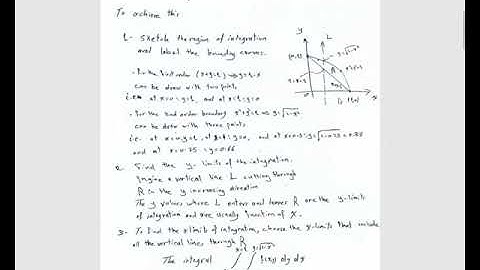 To achieve this
1- Sketch the region of integration
and label the boundary curves.
- For the first order (x+y=1) ⇒ y=1-x
can be draw with two points
i.e at x=0 → y=1, and at x=1 → y=0
- For the 2nd order boundary x²+y²=1 ⇒ y=√1-x²
can be draw with three points.
and at x=0.75 → y=0.66
2- Find the y- limits of the integration.
Imagine a vertical line L cutting through
R in the y increasing direction
The y values where L enters and leaves R are the y-limits
of integration and are usually function of x.
3- To find the x limits of integration, choose the x-limits that include
all the vertical lines through R
The integral
f(x,y) dy dx
y
L
y=√1-x²
(0,1)
R
x